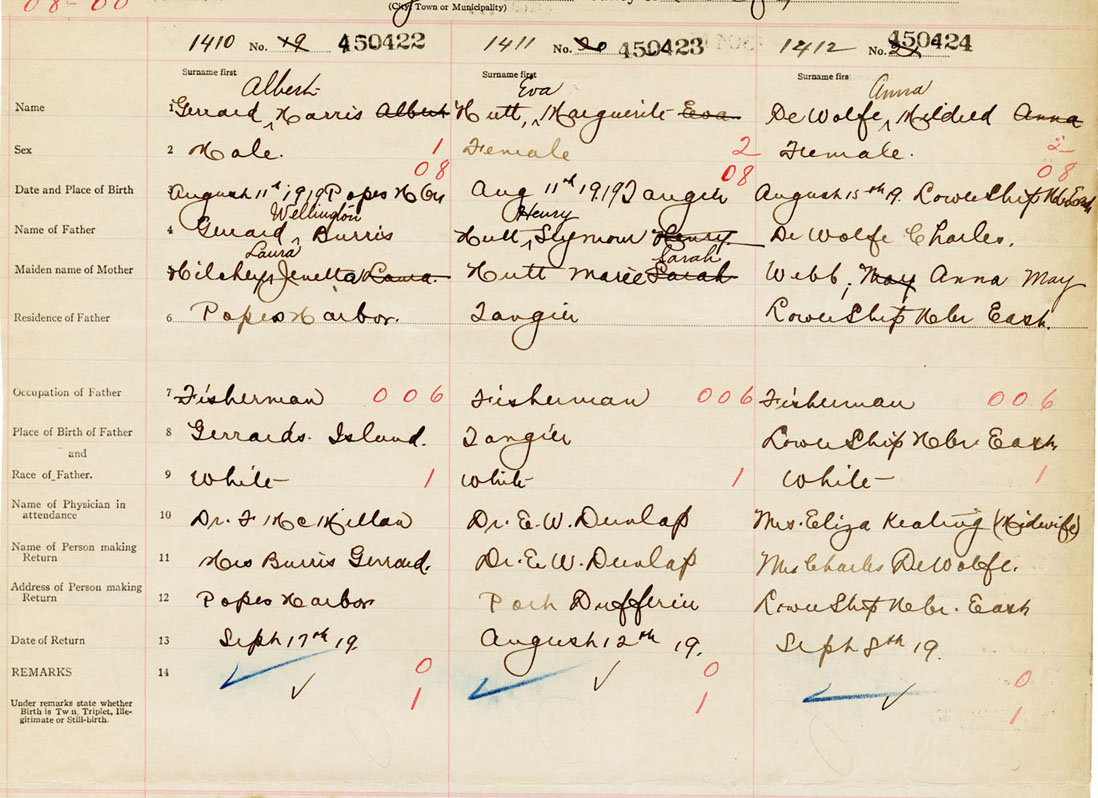 08-00
(City, Town or Municipality)
1410 No. 19 450422 1411 No. 20 450423 1412 No. 450424
Surname first Surname first Surname firs
Albert Eva Anna
Name 1 Gerrard, Harris Albert Hutt, Marguerite Eva De Wolfe, Mildred Anna
Sex 2 Male. 1 Female 2 Female. 2
08 08 08
Date and Place of Birth 3 August 11th, 1919 Popes Hbr Aug 11th 1919 Tangier August 15th 19. Lower Ship Hbr East
Wellington Henry
Name of Father 4 Gerrard, Burris Hutt, Seymour Henry De Wolfe Charles.
Laura Sarah
Maiden name of Mother Hilchey, Jenetta Laura. Hutt Marie Sarah Webb, May Anna May
Residence of Father 6 Popes Harbor. Tangier Lower Ship Hbr East.
Occupation of Father 7 Fisherman 006 Fisherman 006 Fisherman 006
Place of Birth of Father 8 Gerrards. Island. Tangier Lower Ship Hbr. East.
and
Race of Father. 9 White 1 White 1 White 1
Name of Physician in
attendance 10 Dr. F McMillan Dr. E. W. Dunlap Mrs. Eliza Keating (Midwife)
Name of Person making
Return 11 Mrs Burris Gerrard. Dr. E. W. Dunlap Mrs Charles De Wolfe.
Address of Person making
Return 12 Popes Harbor Port Dufferin Lower Ship Hbr. East
Date of Return 13 Sept 17th 19. August 12th 19. Sept 8th 19.
REMARKS 14 0 0 0
Under remarks state whether
Birth is Tw n, Triplet, Ille-
gitimate or Still-birth. 1 1 1